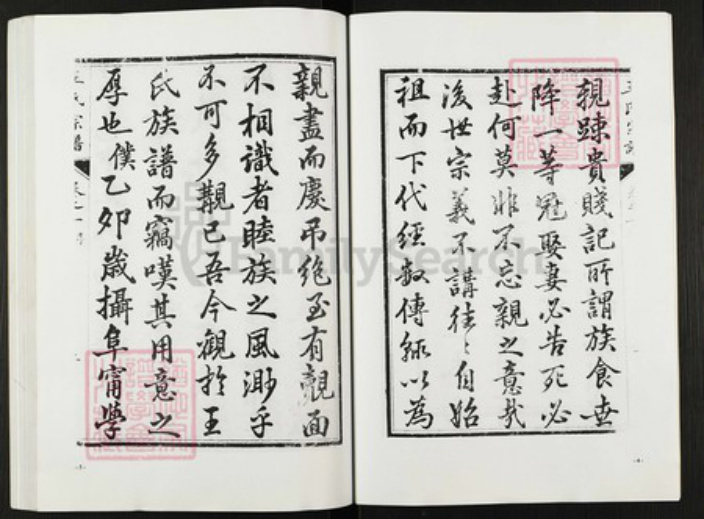 親踈貴賤記所謂族食世
降一等冠娶妻必告死必
赴何莫非不忘親之意哉
後世宗義不講徃〻自始
祖而下代經數傳緜以為
親盡而慶吊絶至有覿面
不相識者睦族之風渺乎
不可多覯已吾今觀於王
氏族譜而竊嘆其用意之
厚也僕乙夘歲攝阜甯學
王氏宗譜
FamilySearch